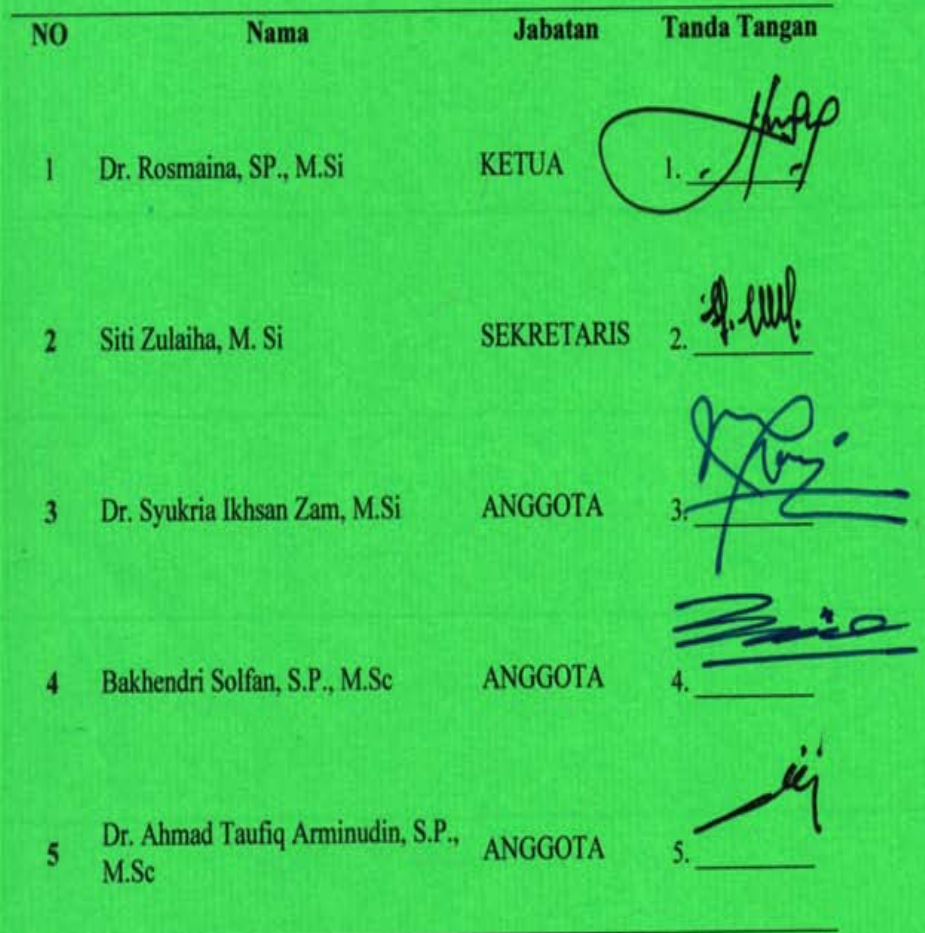 NO Nama Jabatan Tanda Tangan
1 Dr. Rosmaina, SP., M.Si KETUA 1.
2 Siti Zulaiha, M. Si SEKRETARIS 2.
3 Dr. Syukria Ikhsan Zam, M.Si ANGGOTA 3.
4 Bakhendri Solfan, S.P., M.Sc ANGGOTA 4.
5 Dr. Ahmad Taufiq Arminudin, S.P., ANGGOTA 5.
M.Sc